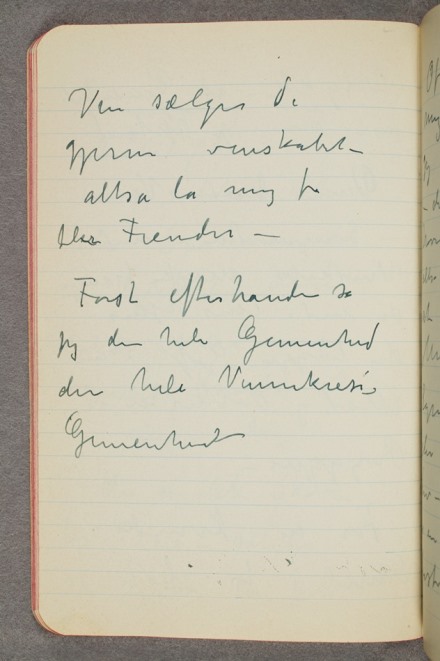 Ven sælges di
gjerne venskabet –
altsa la mig fa
blir Fiender –
Forst efterhanden sa
jeg den hele Gemenhed
den hele Vennekreds's
Gemenhed